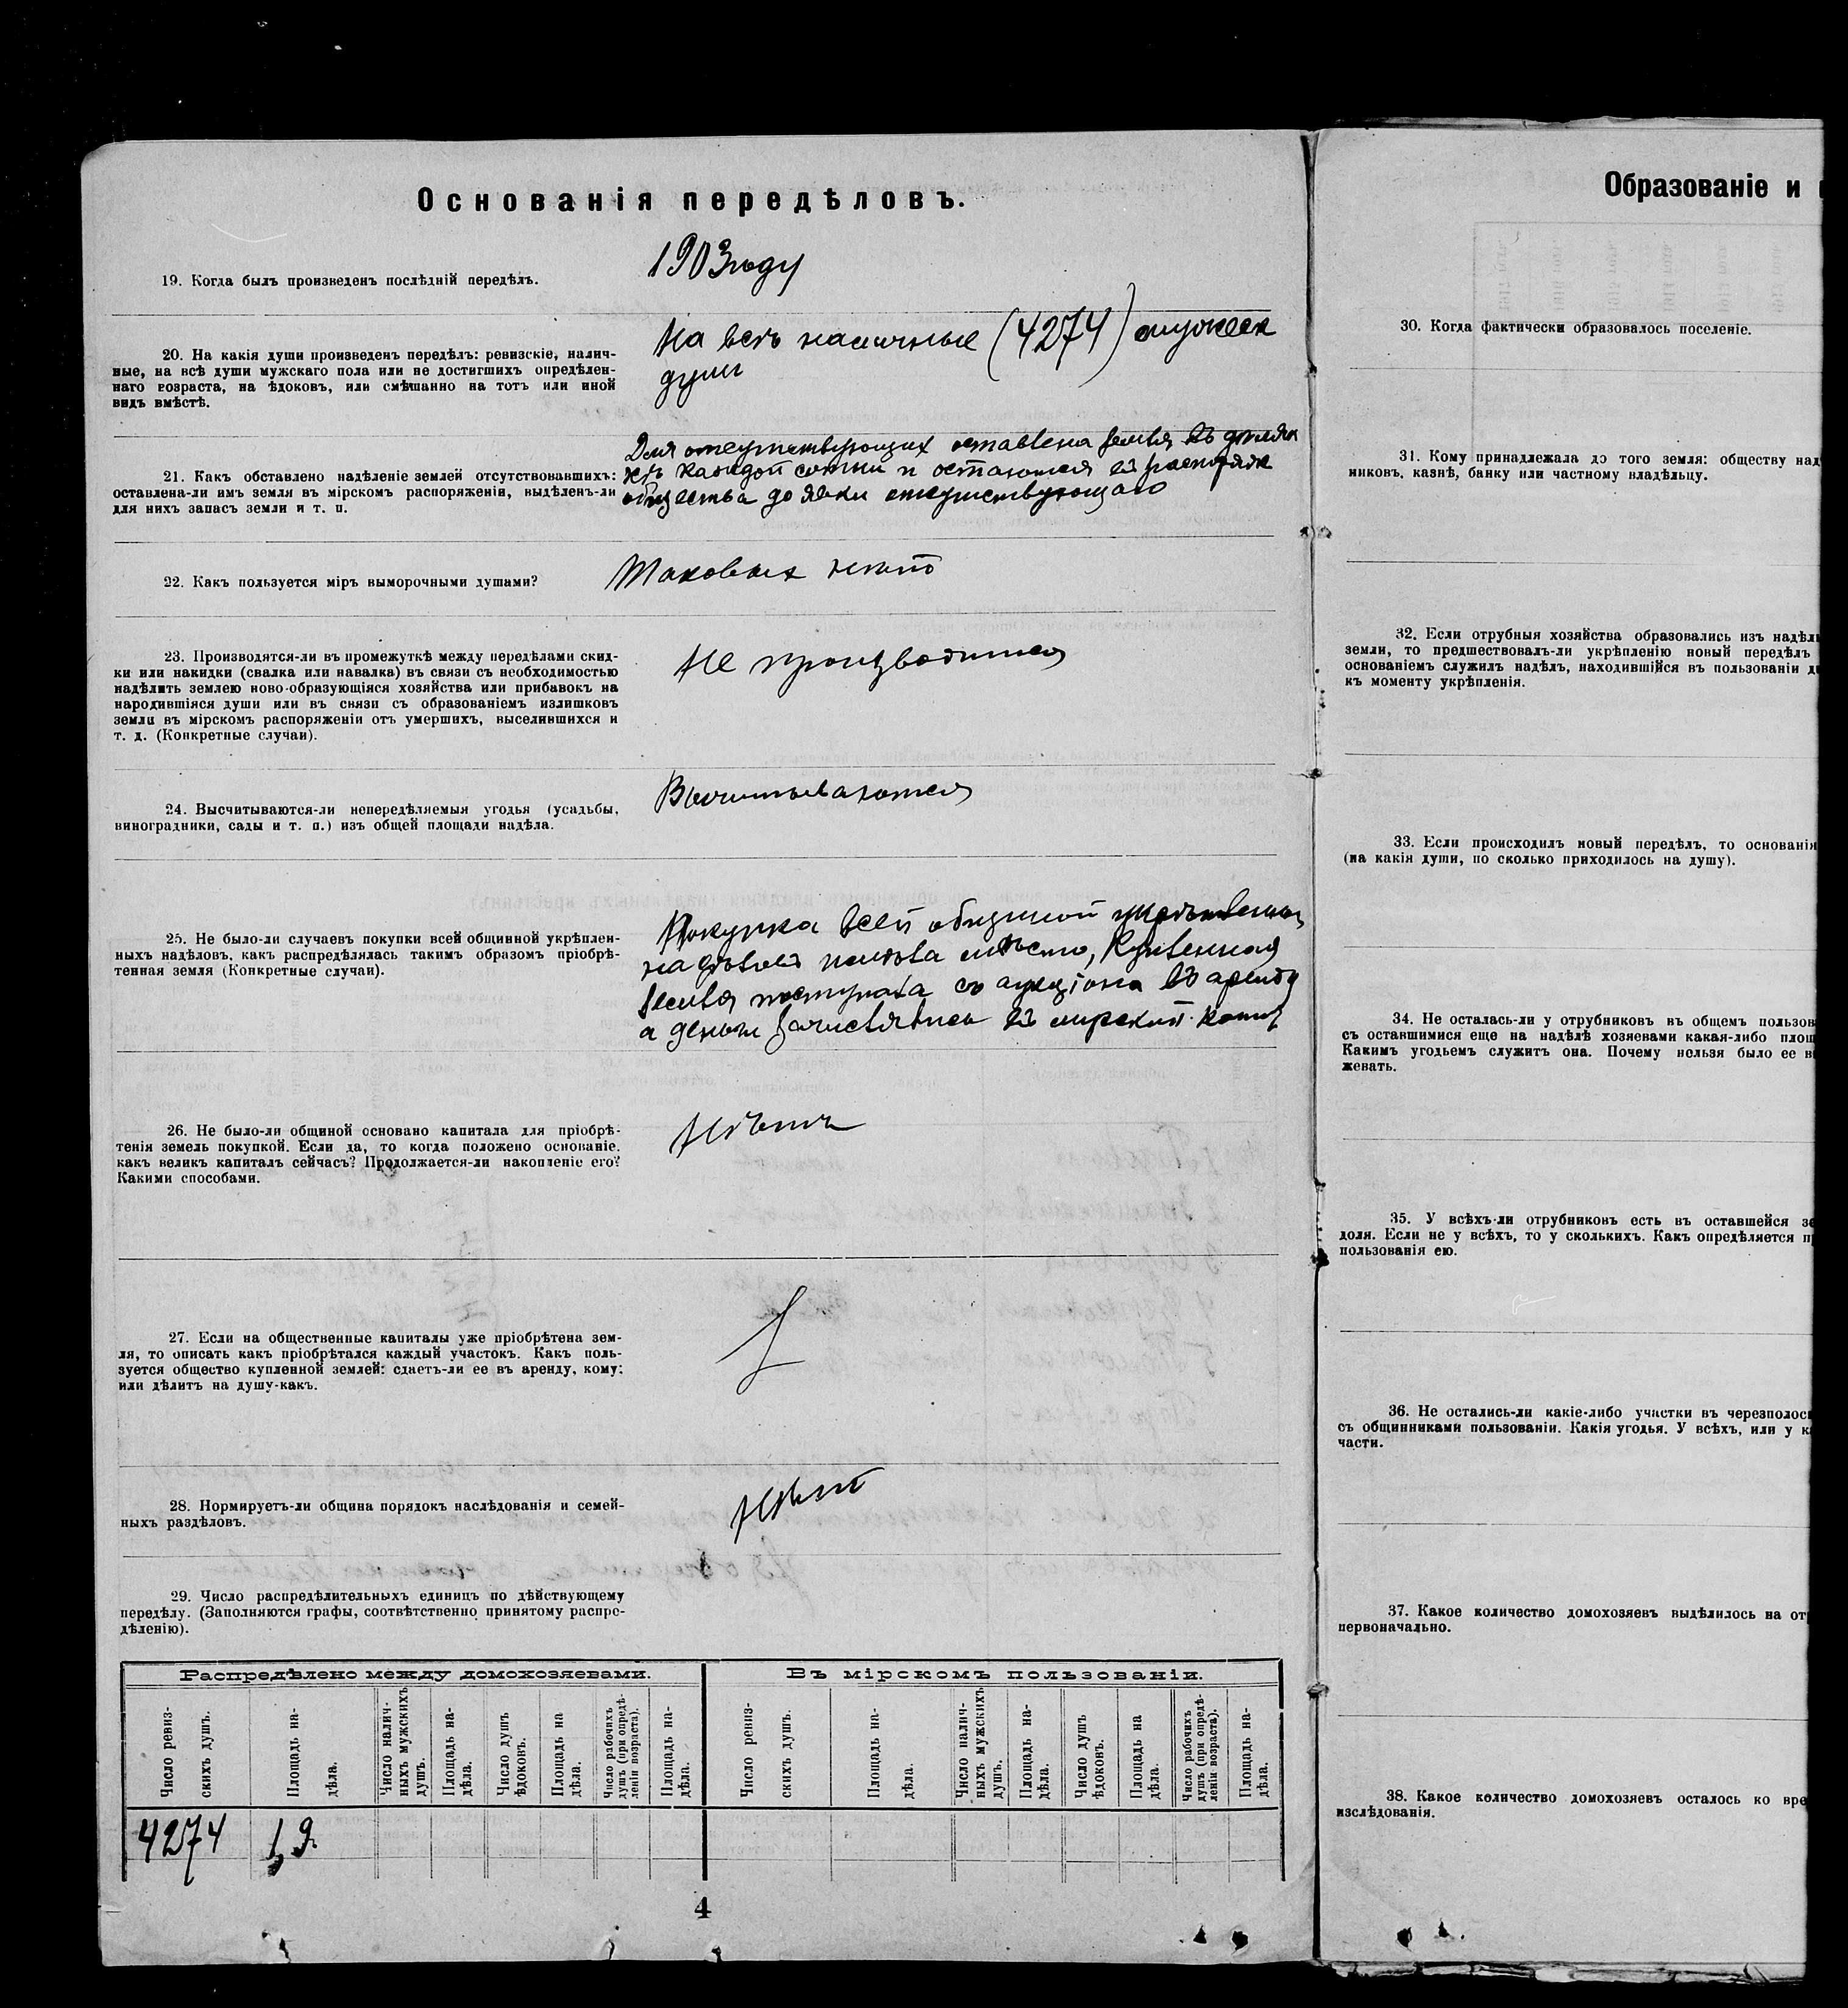 Основанія передѣловъ.
19. Когда былъ произведенъ послѣдній передѣлъ.
1903 году
20. На какія души произведенъ передѣлъ: ревизскіе, налич-
ные, на всѣ души мужскаго пола или не достигшихъ опредѣлен-
наго возраста, на ѣдоковъ, или смѣшанно на тотъ или иной
видъ вмѣстѣ.
На всѣ наличные (4274) мужеск
души
21. Какъ обставлено надѣленіе землей отсутствовавшихъ:
оставлена-ли имъ земля въ мірскомъ распоряженіи, выдѣленъ-ли
для нихъ запасъ земли и т. п.
Для отсутствующих оставлена земля въ
каждой сотни и остаются въ распоряж
общества до явки отсутствующаго
22. Какъ пользуется міръ выморочными душами?
Таковых нѣтъ
23. Производятся-ли въ промежуткѣ между передѣлами скид-
ки или накидки (свалка или навалка) въ связи съ необходимостью
надѣлить землею ново-образующіяся хозяйства или прибавокъ на
народившіяся души или въ связи съ образованіемъ излишковъ
земли въ мірскомъ распоряженіи отъ умершихъ, выселившихся и
т. д. (Конкретные случаи).
Не производится
24. Высчитываются-ли непередѣляемыя угодья (усадьбы,
виноградники, сады и т. п.) изъ общей площади надѣла.
Высчитываются
25. Не было-ли случаевъ покупки всей общинной укрѣплен-
ныхъ надѣловъ, какъ распредѣлялась такимъ образомъ пріобрѣ-
тенная земля (Конкретные случаи).
Покупка всей общиной
надѣлов имѣла мѣсто, Купленная
земля поступала съ аукціона въ аренду
а деньги зачислялись въ мирской
26. Не было-ли общиной основано капитала для пріобрѣ-
тенія земель покупкой. Если да, то когда положено основаніе.
какъ великъ капиталъ сейчасъ? Продолжается-ли накопленіе его?
Какими способами.
Нѣтъ
27. Если на общественные капиталы уже пріобрѣтена зем-
ля, то описать какъ пріобрѣтался каждый участокъ. Какъ поль-
зуется общество купленной землей: сдаетъ-ли ее въ аренду, кому:
или дѣлитъ на душу-какъ.
28. Нормируетъ-ли община порядокъ наслѣдованія и семей-
ныхъ раздѣловъ.
нѣтъ
29. Число распредѣлительныхъ единицъ по дѣйствующему
передѣлу. (Заполняются графы, соотвѣтственно принятому распре-
дѣленію).
Распредѣлено между домохозяевами.
Въ мірскомъ пользованіи.
Число ревиз-
скихъ душъ.
Площадь на-
дѣла.
Число налич-
ныхъ мужскихъ
душъ.
Площадь на-
дѣла.
Число душъ
ѣдоковъ.
Площадь на
дѣла.
Число рабочихъ
душъ (при опредѣ-
леніи возраста).
Площадь на-
дѣла.
Число ревиз-
скихъ душъ.
Площадь на-
дѣла.
Число налич-
ныхъ мужскихъ
душъ.
Площадь на-
дѣла.
Число душъ
ѣдоковъ.
Площадь на
дѣла.
Число рабочихъ
душъ (при опредѣ-
леніи возраста).
Площадь на-
дѣла.
4274
4
Образованіе и
30. Когда фактически образовалось поселеніе.
31. Кому принадлежала до того земля: обществу над
миковъ, казнѣ, банку или частному владѣльцу.
32. Если отрубныя хозяйства образовались изъ надѣл
земли, то предшествовалъ-ли укрѣпленію новый передѣлъ
основаніемъ служилъ надѣлъ, находившійся въ пользованіи д
къ моменту укрѣпленія.
33. Если происходилъ новый передѣлъ, то основанія
(на какія души, по сколько приходилось на душу).
34. Не осталась-ли у отрубниковъ въ общемъ пользов
съ оставшимися еще на надѣлѣ хозяевами какая-либо площ
Какимъ угодьемъ служитъ она. Почему нельзя было ее в
жевать.
35. У всѣхъ-ли отрубниковъ есть въ оставшейся зе
доля. Если не у всѣхъ, то у сколькихъ. Какъ опредѣляется п
пользованія ею.
36. Не остались-ли какіе-либо участки въ черезполос
съ общинниками пользованіи. Какія угодья. У всѣхъ, или у к
части.
37. Какое количество домохозяевъ выдѣлилось на от
первоначально.
38. Какое количество домохозяевъ осталось ко вре
изслѣдованія.